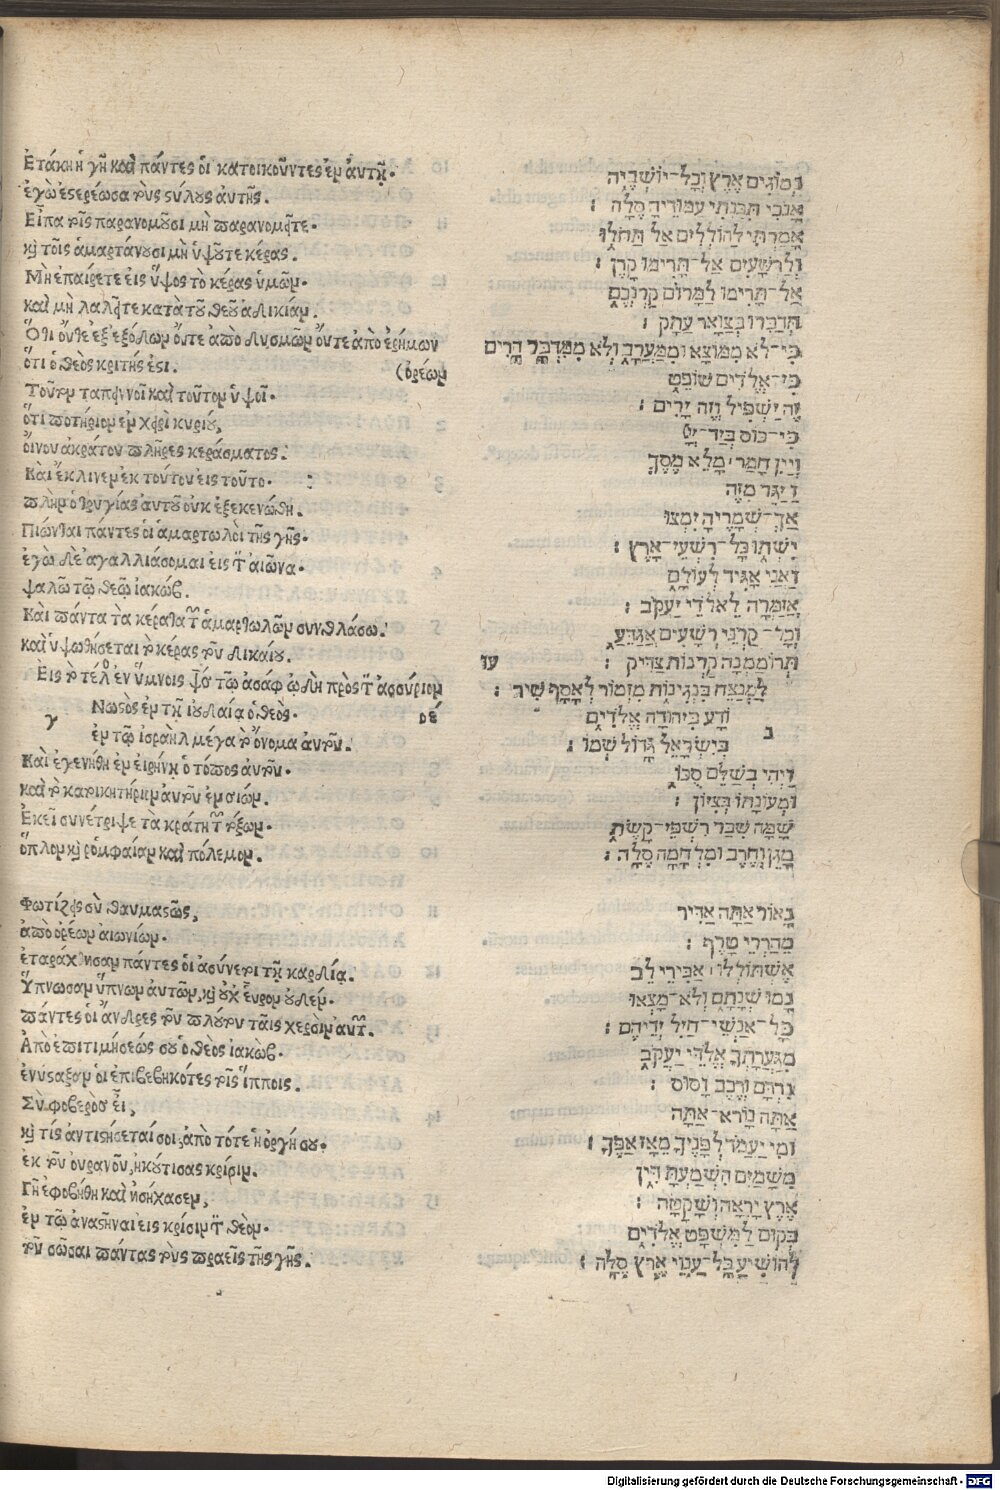 Ἐτάκη ἡ γῆ καὶ πάντες οἱ κατοικοῦντες ἐν αὐτῇ.
ἐγὼ ἐστερέωσα τοὺς στύλους αὐτῆς.
Εἶπα τοῖς παρανομοῦσι μὴ παρανομεῖτε.
καὶ τοῖς ἁμαρτάνουσι μὴ ὑψοῦτε κέρας.
Μὴ ἐπαίρετε εἰς ὕψος τὸ κέρας ὑμῶν.
καὶ μὴ λαλεῖτε κατὰ τοῦ θεοῦ ἀδικίαν.
Ὅτι οὔτε ἐξ ἐξόδων οὔτε ἀπὸ δυσμῶν οὔτε ἀπὸ ἐρήμων
(ὀρέων
ὅτι ὁ θεὸς κριτής ἐστι.
Τοῦτον ταπεινοῖ καὶ τοῦτον ὑψοῖ.
ὅτι ποτήριον ἐν χειρὶ κυρίου,
οἴνου ἀκράτου πλῆρες κεράσματος.
Καὶ ἔκλινεν ἐκ τούτου εἰς τοῦτο.
πλὴν ὁ τρυγίας αὐτοῦ οὐκ ἐξεκενώθη.
Πιόνται πάντες οἱ ἁμαρτωλοὶ τῆς γῆς.
ἐγὼ δὲ ἀγαλλιάσομαι εἰς τὸν αἰῶνα.
ψαλῶ τῷ θεῷ ἰακώβ.
Καὶ πάντα τὰ κέρατα τῶν ἁμαρτωλῶν συνθλάσω.
καὶ ὑψωθήσεται τὸ κέρας τοῦ δικαίου.
Εἰς τὸ τέλος ἐν ὕμνοις ψαλμὸς τῷ ἀσάφ ᾠδὴ πρὸς τὸν ἀσσύριον
Γνωστὸς ἐν τῇ ἰουδαίᾳ ὁ θεὸς. οε
ἐν τῷ ἰσραὴλ μέγα τὸ ὄνομα αὐτοῦ.
Καὶ ἐγενήθη ἐν εἰρήνῃ ὁ τόπος αὐτοῦ.
καὶ τὸ κατοικητήριον αὐτοῦ ἐν σιών.
Ἐκεῖ συνέτριψε τὰ κράτη τῶν τόξων.
ὅπλον καὶ ῥομφαίαν καὶ πόλεμον.
Φωτίζεις σὺ θαυμαστῶς,
ἀπὸ ὀρέων αἰωνίων.
ἐταράχθησαν πάντες οἱ ἀσύνετοι τῇ καρδίᾳ.
Ὕπνωσαν ὕπνον αὐτῶν, καὶ οὐχ εὗρον οὐδέν.
πάντες οἱ ἄνδρες τοῦ πλούτου ταῖς χερσὶν αὐτῶν.
Ἀπὸ ἐπιτιμήσεώς σου ὁ θεὸς ἰακώβ.
ἐνύσταξαν οἱ ἐπιβεβηκότες τοῖς ἵπποις.
Σὺ φοβερὸς εἶ,
καὶ τίς ἀντιστήσεταί σοι; ἀπὸ τότε ἡ ὀργή σου.
ἐκ τοῦ οὐρανοῦ ἠκούτισας κρίσιν.
Γῆ ἐφοβήθη καὶ ἡσύχασεν,
ἐν τῷ ἀναστῆναι εἰς κρίσιν τὸν θεὸν.
τοῦ σῶσαι πάντας τοὺς πραεῖς τῆς γῆς.
נְמוֹגִים אֶרֶץ וְכָל־יוֹשְׁבֶיהָ
אָנֹכִי תִּכַּנְתִּי עַמּוּדֶיהָ סֶלָה :
אָמַרְתִּי לַהוֹלְלִים אַל תָּהֹלּוּ
וְלָרְשָׁעִים אַל־תָּרִימוּ קָרֶן :
אַל־תָּרִימוּ לַמָּרוֹם קַרְנְכֶם
תְּדַבְּרוּ בְצַוָּאר עָתָק :
כִּי־לֹא מִמּוֹצָא וּמִמַּעֲרָב וְלֹא מִמִּדְבַּר הָרִים
כִּי־אֱלֹדִים שׁוֹפֵט
זֶה יַשְׁפִּיל וְזֶה יָרִים :
כִּי־כוֹס בְּיַד־יְיָ
וְיַיִן חָמַר מָלֵא מֶסֶךְ
וַיַּגֵּר מִזֶּה
אַךְ־שְׁמָרֶיהָ יִמְצוּ
יִשְׁתּוּ כָּל־רִשְׁעֵי־אָרֶץ :
וַאֲנִי אַגִּיד לְעוֹלָם
אֲזַמְּרָה לֵאלֹדֵי יַעֲקֹב :
וְכָל־קַרְנֵי רְשָׁעִים אֲגַדֵּעַ
תְּרוֹמַמְנָה קַרְנוֹת צַדִּיק : עו
לַמְנַצֵּחַ בִּנְגִינוֹת מִזְמוֹר לְאָסָף שִׁיר :
נוֹדָע בִּיהוּדָה אֱלֹדִים
בְּיִשְׂרָאֵל גָּדוֹל שְׁמוֹ :
וַיְהִי בְשָׁלֵם סֻכּוֹ
וּמְעוֹנָתוֹ בְצִיּוֹן :
שָׁמָּה שִׁבַּר רִשְׁפֵי־קָשֶׁת
מָגֵן וְחֶרֶב וּמִלְחָמָה סֶלָה :
נָאוֹר אַתָּה אַדִּיר
מֵהַרְרֵי טָרֶף :
אֶשְׁתּוֹלְלוּ אַבִּירֵי לֵב
נָמוּ שְׁנָתָם וְלֹא־מָצְאוּ
כָל־אַנְשֵׁי־חַיִל יְדֵיהֶם :
מִגַּעֲרָתְךָ אֱלֹדֵי יַעֲקֹב
נִרְדָּם וְרֶכֶב וָסוּס :
אַתָּה נוֹרָא־אַתָּה
וּמִי יַעֲמֹד לְפָנֶיךָ מֵאָז אַפֶּךָ :
מִשָּׁמַיִם הִשְׁמַעְתָּ דִּין
אֶרֶץ יָרְאָה וְשָׁקָטָה :
בְּקוּם לַמִּשְׁפָּט אֱלֹדִים
לְהוֹשִׁיעַ כָּל־עַנְוֵי אֶרֶץ סֶלָה :
Digitalisierung gefördert durch die Deutsche Forschungsgemeinschaft - DFG